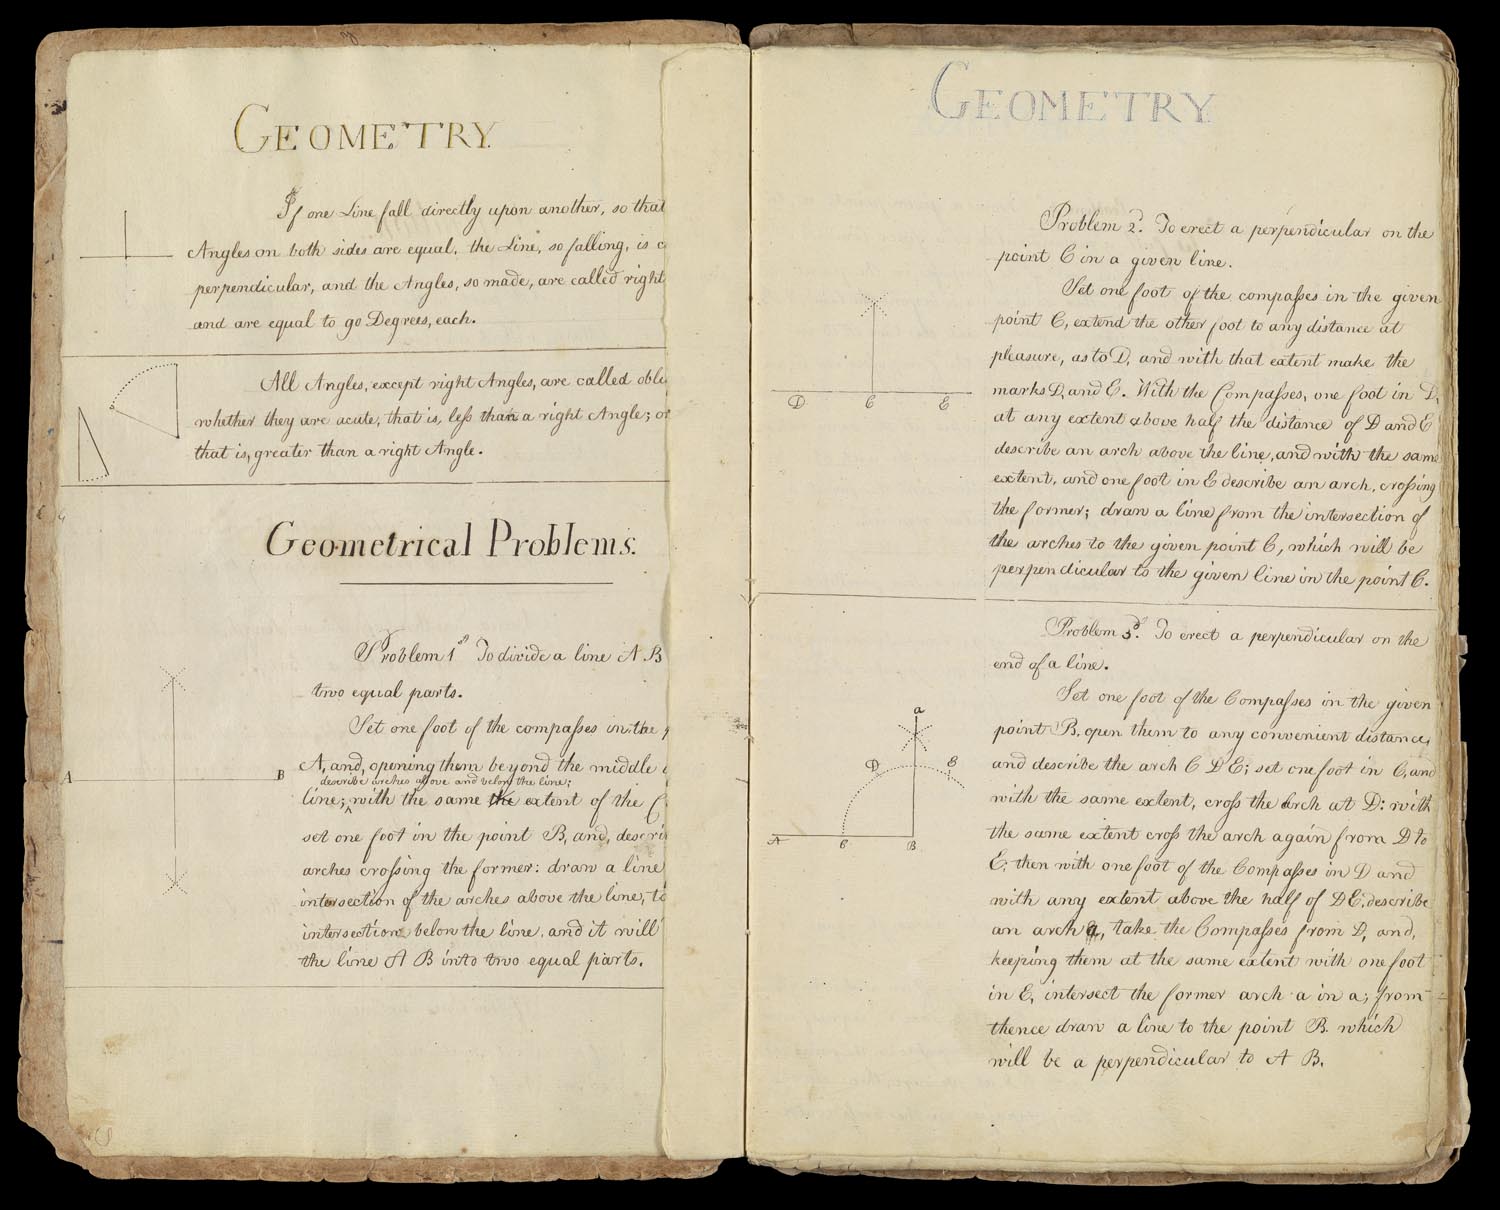 GEOMETRY
If one Line fall directly upon another, so that
Angles on both sides are equal, the Line, so falling, is c
perpendicular, and the Angles, so made, are called right
and are equal to 90 Degrees, each.
All Angles, except right Angles, are called obli
whether they are acute, that is, leſs than a right Angle; or
that is, greater than a right Angle.
Geometrical Problems.
Problem 1st To divide a line A B
two equal parts.
Set one foot of the compaſses in the
A, and, opening them beyond the middle
describe arches above and below the line;
line; ^ with the same the extent of the C
set one foot in the point B, and, descri
arches croſsing the former: draw a line
intersection of the arches above the line, to
intersection below the line, and it will
the line A B into two equal parts.
A
B
GEOMETRY
Problem 2d. To erect a perpendicular on the
point C in a given line.
Set one foot of the compaſses in the given
point C, extend the other foot to any distance at
pleasure, as to D, and with that extent make the
marks D, and E. With the Compaſses, one foot in D,
at any extent above half the distance of D and E
describe an arch above the line, and with the same
extent, and one foot in E describe an arch, croſsing
the former; draw a line from the intersection of
the arches to the given point C, which will be
perpendicular to the given line in the point C.
D
C
E
Problem 3d. To erect a perpendicular on the
end of a line.
Set one foot of the Compaſses in the given
point B, open them to any convenient distance,
and describe the arch C D E; set one foot in C, and
with the same extent, croſs the arch at D: with
the same extent croſs the arch again from D to
E; then with one foot of the Compaſses in D and
with any extent above the half of D E, describe
an arch a, take the Compaſses from D, and,
keeping them at the same extent with one foot
in E, intersect the former arch a in a; from
thence draw a line to the point B. which
will be a perpendicular to A B.
a
D
E
A
C
B